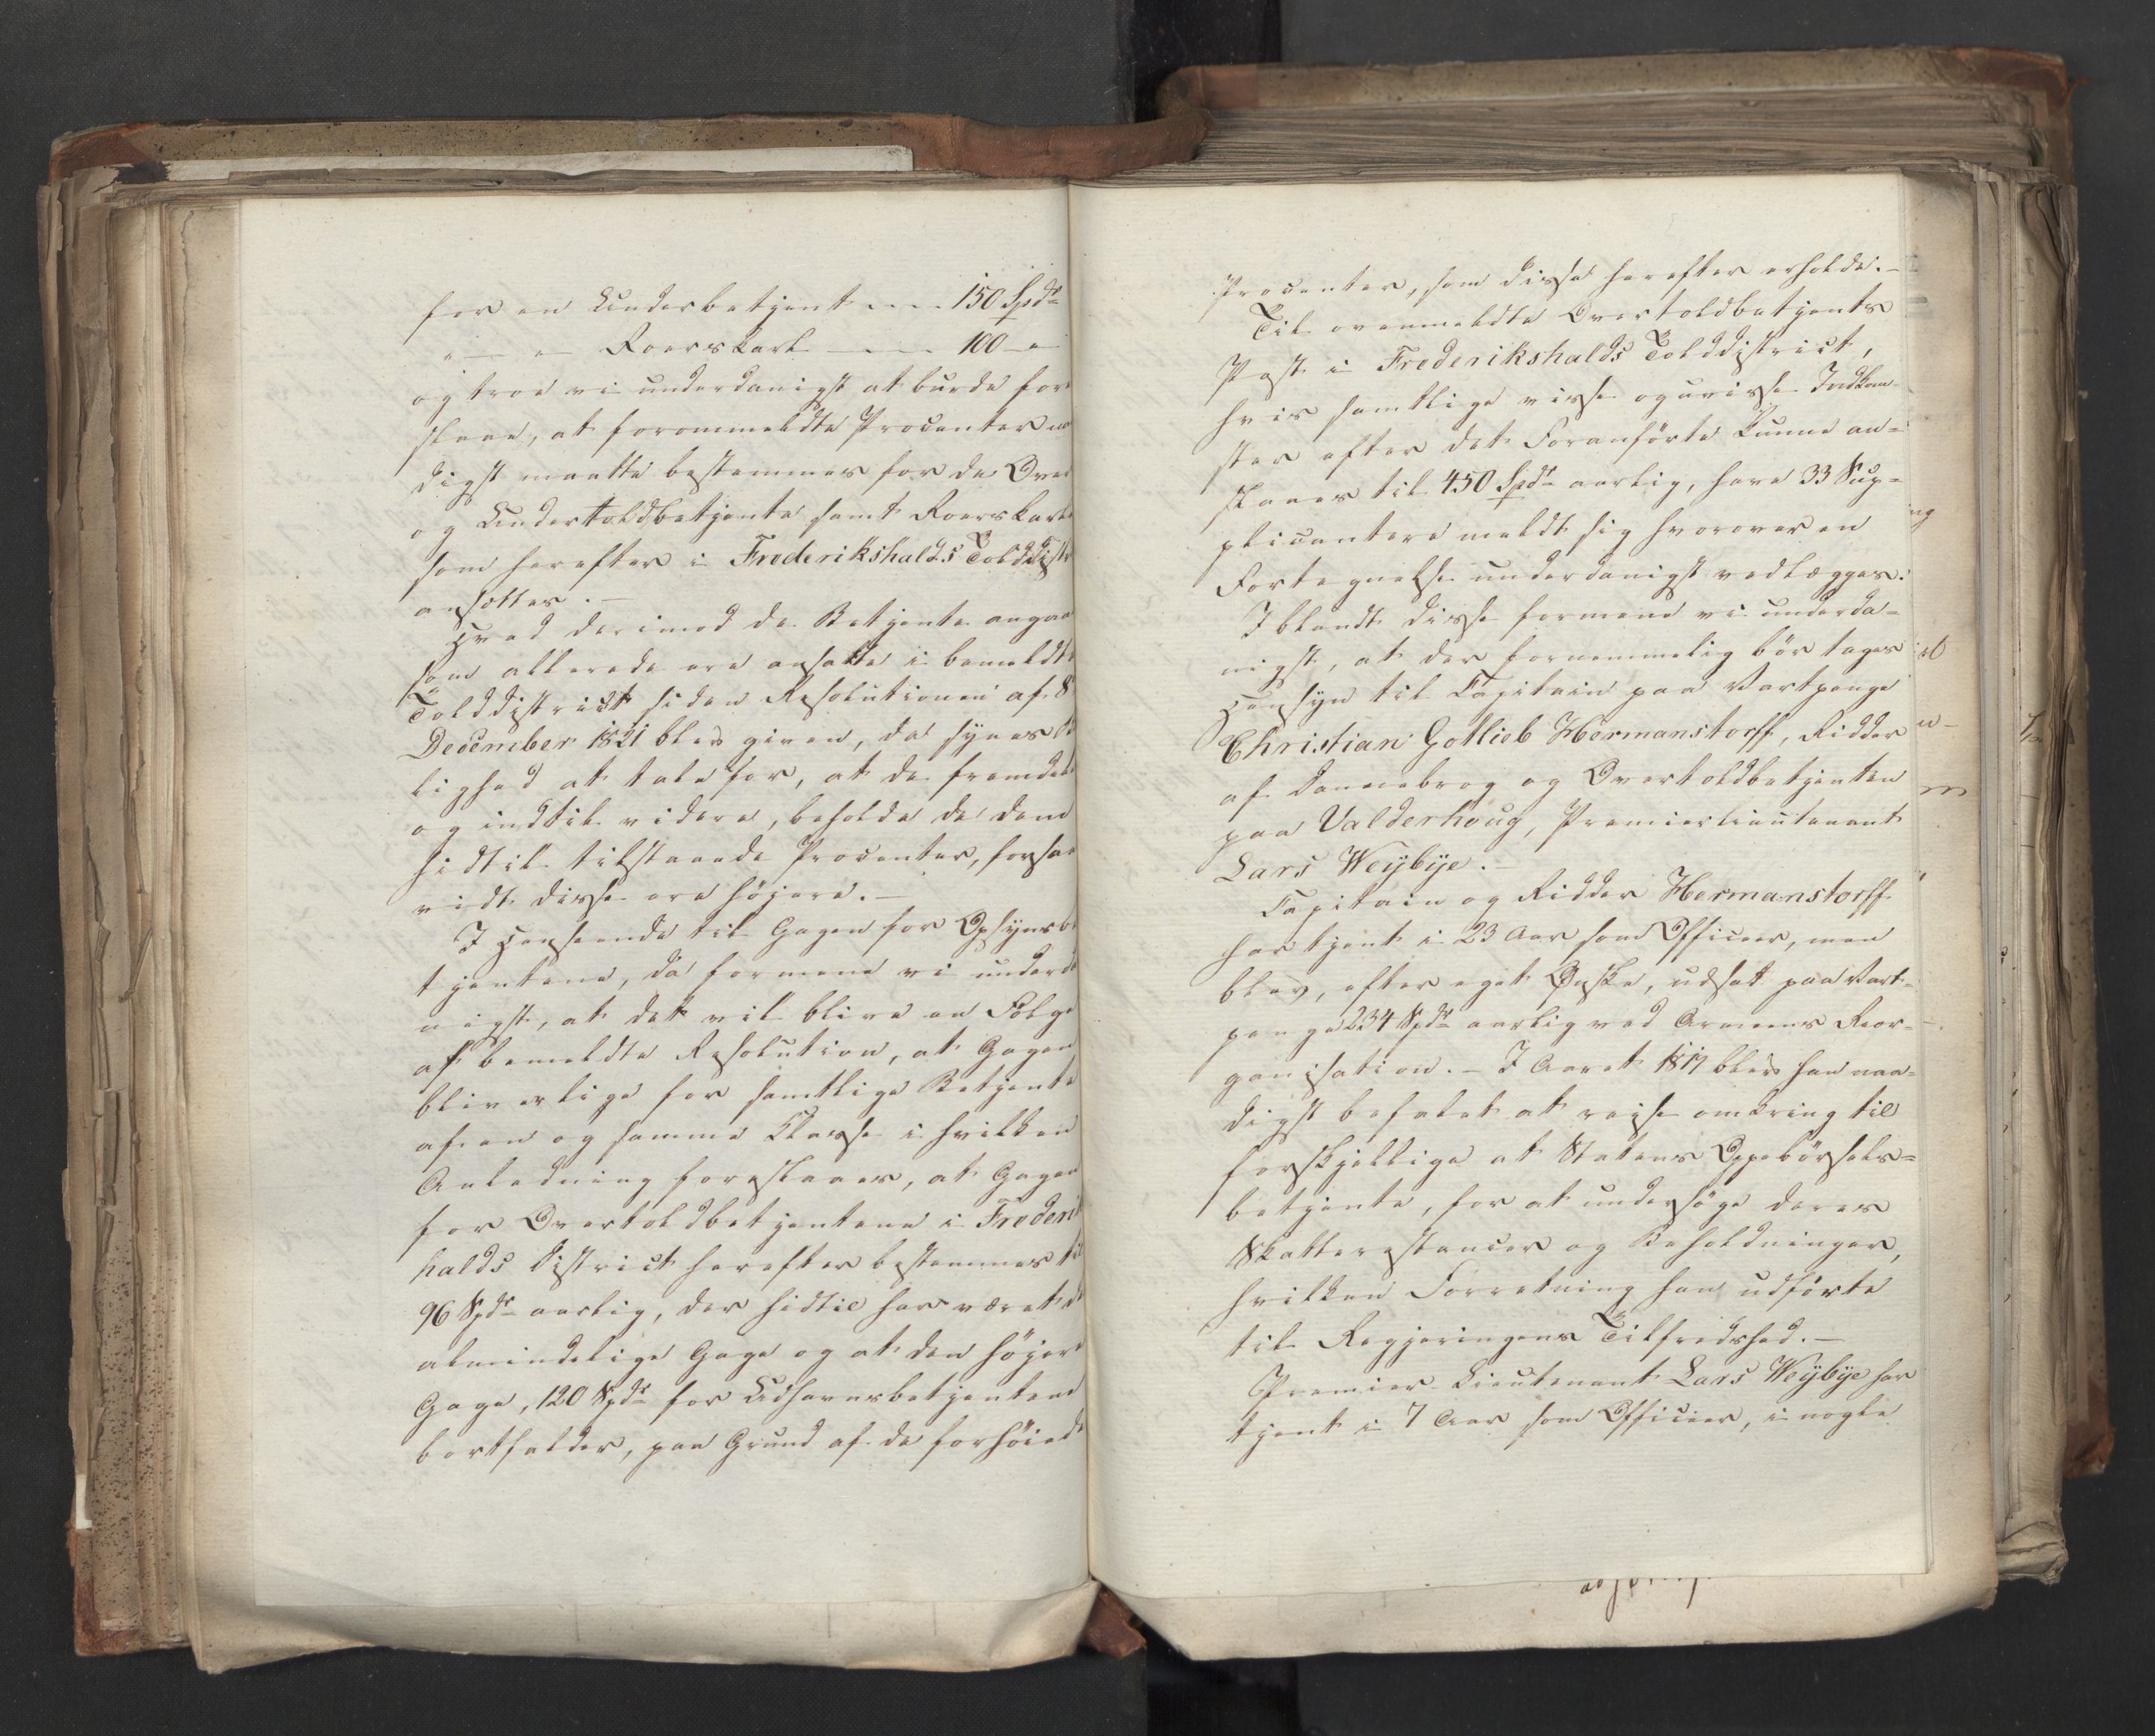 for en Underbetjent ... 150 Spdr
" — " — Roerskarl — .. 100 — "
og troe vi underdanigst at burde fore
slaae, at forommeldte Procenter naa
digst maatte bestemmes for de Over
og Undertoldbetjente samt Roerskarle
som herefter i Frederikshalds Tolddistr
ansættes. —
Hvad derimod de Betjente angaae
som allerede ere ansatte i bemeldte
Tolddistrict siden Resolutionen af 8
December 1821 blev given, da synes Bil
lighed at tale for, at de fremdeles
og indtil videre, beholde de dem
hidtil tilstaaede Procenter, forsaa
vidt disse ere höjere. —
I Henseende til Gagen for Opsynsbe
tjentene, da formene vi underda
nigst, at det vil blive en Fölge
af bemeldte Resolution, at Gagen
bliver lige for samtlige Betjente
af en og samme Classe i hvilken
Anledning foreslaaes, at Gagen
for Overtoldbetjentene i Frederik
halds District herefter bestemmes til
96 Spdr aarlig, der hidtil har været de
almindelige Gage og at den höjere
Gage, 120 Spdr for Udhavnsbetjentene
bortfalder, paa Grund af de forhöiede
Procenter, som disse herefter erholde. —
Til ovenmeldte Overtoldbetjents
Post i Frederikshalds Tolddistrict,
hvis samtlige visse og uvisse Indkom-
ster efter det Foranförte kunne an=
slaaes til 450 Spdr aarlig, have 33 Sup=
plicantere meldt sig hvorover en
Fortegnelse underdanigst vedlægges.
Iblandt disse formene vi underda=
nigst, at der fornemmelig bör tages
Hensyn til Capitain paa Vartpenge
Christian Gotlieb Hermanstorff, Ridder
af Dannebrog og Overtoldbetjenten
paa Valderhoug, Premierlieutenant
Lars Weÿbÿe. —
Capitain og Ridder Hermanstorff
har tjent i 23 Aar som Officeer, men
blev, efter eget Ønske, udsat paa Vart=
penge 234 Spdr aarlig ved Armeens Reor=
ganisation. — I Aaret 1817 blev han naa=
digst befalet at reise omkring til
forskjellige at Statens Oppebörsels=
betjente, for at undersöge deres
Skatterestancer og Beholdninger,
hvilken Forretning han udförte
til Regjeringens Tilfredshed. —
Premier-Lieutenant Lars Weÿbÿe har
tjent i 7 Aar som Officier, i nogle